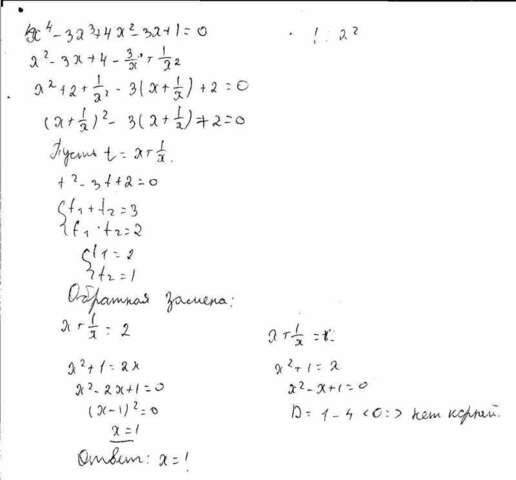 x⁴ - 3x³ + 4x² - 3x + 1 = 0
! : x²
x² - 3x + 4 - 3/x + 1/x²
x² + 2 + 1/x² - 3(x + 1/x) + 2 = 0
(x + 1/x)² - 3(x + 1/x) + 2 = 0
Пусть t = x + 1/x.
t² - 3t + 2 = 0
{t₁ + t₂ = 3
t₁ · t₂ = 2
{t₁ = 2
t₂ = 1
Обратная замена:
x + 1/x = 2
x² + 1 = 2x
x² - 2x + 1 = 0
(x-1)² = 0
x = 1
x + 1/x = 1
x² + 1 = x
x² - x + 1 = 0
D = 1 - 4 < 0 => нет корней.
Ответ: x = 1